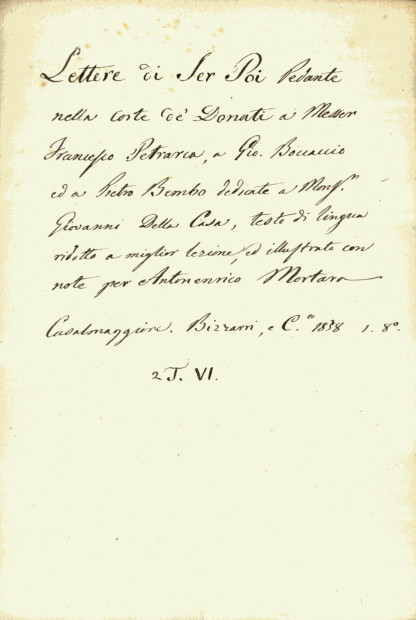 Lettere di Ser Poi Pedante
nella corte de' Donati a Messer
Francesco Petrarca, a Gio. Boccaccio
ed a Pietro Bembo dedicate a Monsr.
Giovanni Della Casa, testo di lingua
ridotto a miglior lezione, ed illustrato con
note per Antonenrico Mortara
Casalmaggiore. Bizzarri, e C.o 1838 1. 8o.
2 T. VI.